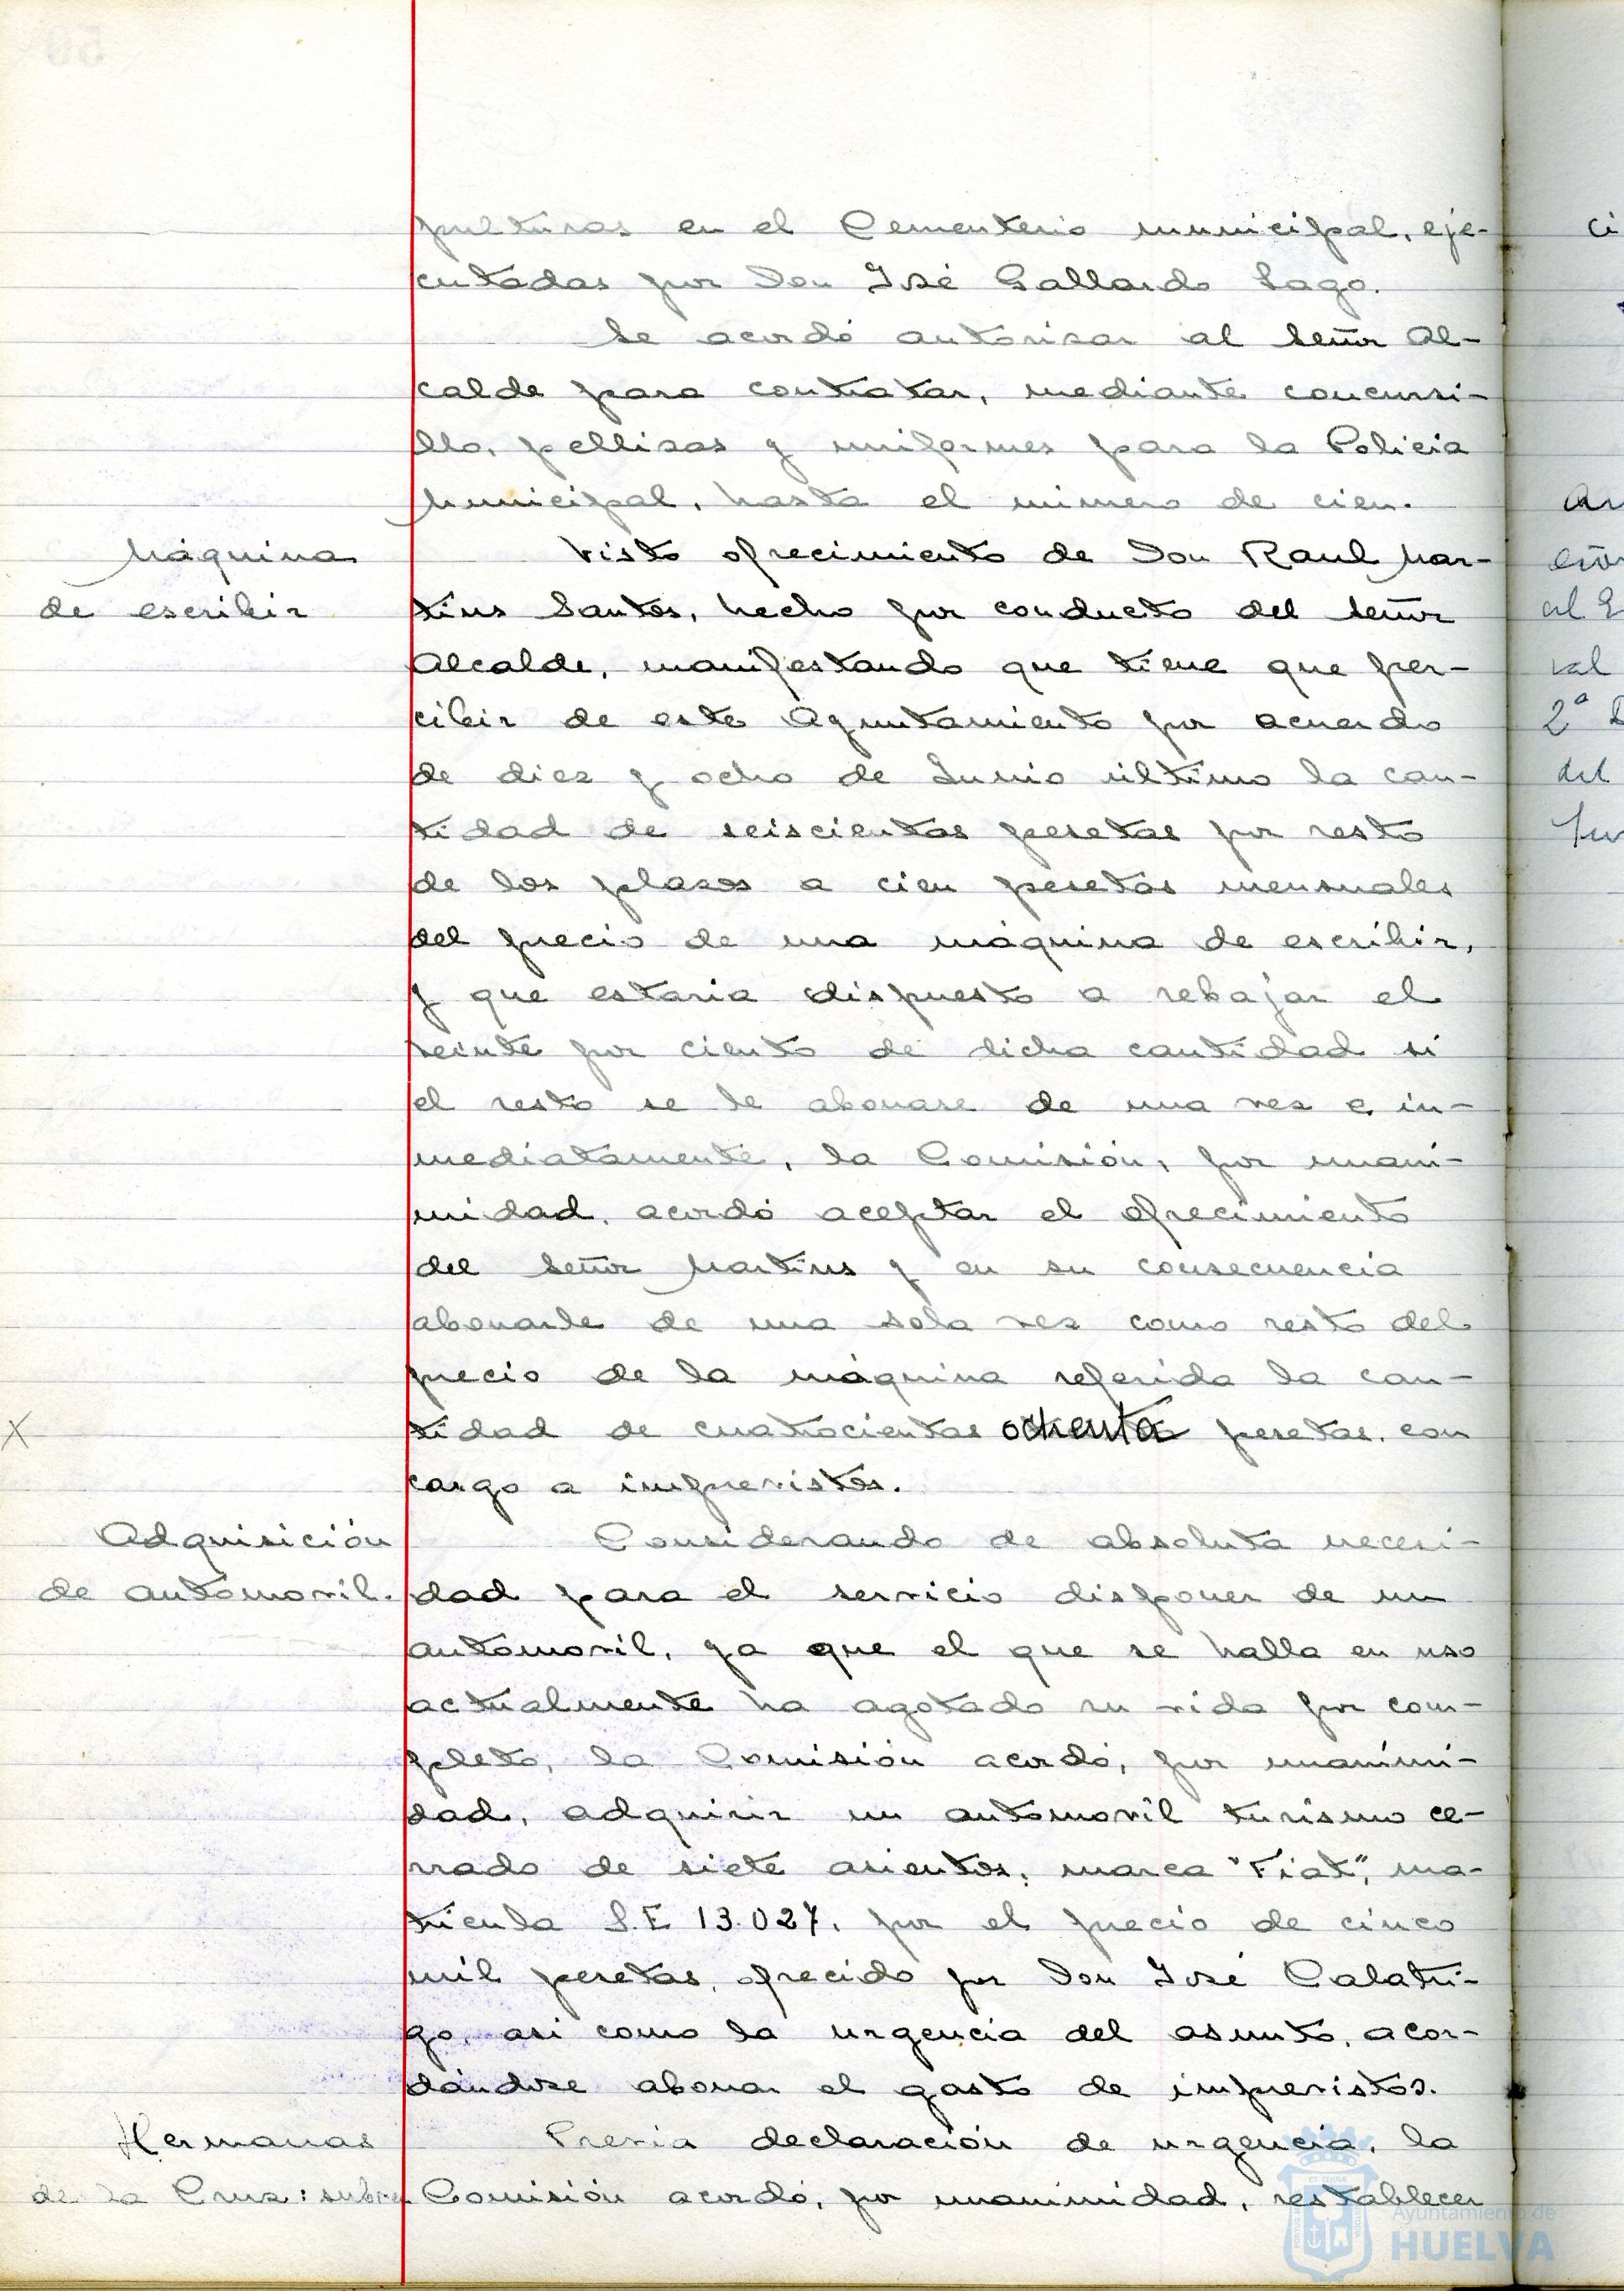 pulturas en el Cementerio municipal, eje-
cutadas por Don José Gallardo Lago.
Se acordó autorizar al Señor Al-
calde para contratar, mediante concursi-
llo, pellizas y uniformes para la Policia
Municipal, hasta el número de cien.
Máquina
de escribir
Visto ofrecimiento de Don Raul Mar-
tins Santos, hecho por conducto del Señor
Alcalde, manifestando que tiene que per-
cibir de este Ayuntamiento por acuerdo
de diez y ocho de Junio último la can-
tidad de seiscientas pesetas por resto
de los plazos a cien pesetas mensuales
del precio de una máquina de escribir,
y que estaria dispuesto a rebajar el
veinte por ciento de dicha cantidad si
el resto se le abonase de una vez e in-
mediatamente, la Comisión, por unani-
midad, acordó aceptar el ofrecimiento
del Señor Martins y en su consecuencia
abonarle de una sola vez como resto del
precio de la máquina referida la can-
X
tidad de cuatrocientas ochenta pesetas, con
cargo a imprevistos.
Adquisición
de automovil.
Considerando de absoluta necesi-
dad para el servicio disponer de un
automovil, ya que el que se halla en uso
actualmente ha agotado su vida por com-
pleto, la Comisión acordó, por unanimi-
dad, adquirir un automovil turismo ce-
rrado de siete asientos, marca "Fiat", ma-
tricula S.E 13.027, por el precio de cinco
mil pesetas, ofrecido por Don José Calatri-
go, asi como la urgencia del asunto, acor-
dándose abonar el gasto de imprevistos.
Hermanas
de la Cruz: subven
Previa declaración de urgencia, la
Comisión acordó, por unanimidad, restablecer
ci
al
val
2ª
del
Ayuntamiento de
HUELVA